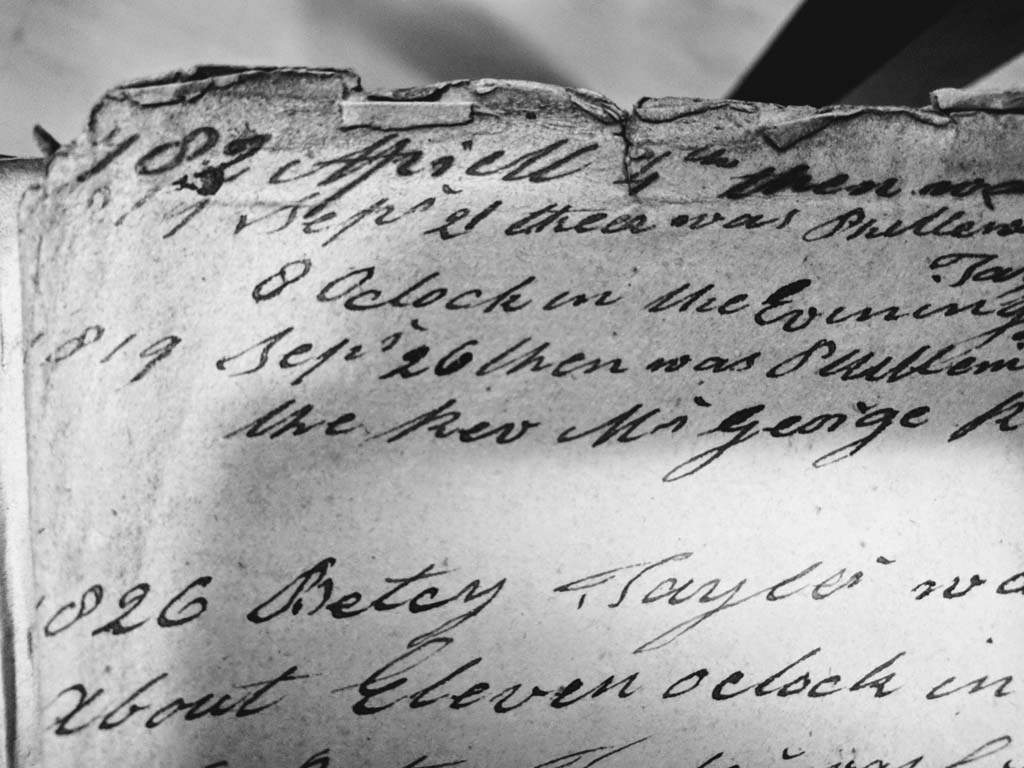 182 Aprill 4th then wa
Sepr 21 thear was
Tay
8 Oclock in the Evining
1819 Sepr 26 then was
the Rev Mr George R
1826 Betcy Taylor wa
About Eleven oclock in
was